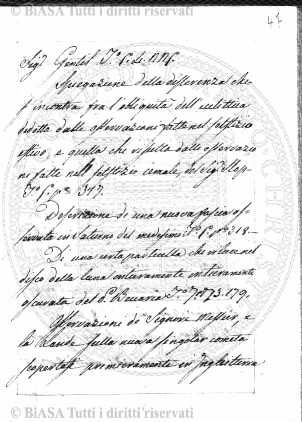 © BIASA Tutti i diritti riservati
47
Sig.r Gentil T.o
Spiegazione della differenza che
s'incontra fra l'obliquità dell'eclittica
dedotta dalle osservazioni fatte nel solstizio
estivo, e quella che risulta dalle osservazio
ni fatte nel solstizio iemale, del Sig.r Slop
T.o 347.
Descrizione di una nuova fascia os-
servata in Saturno del medesimo T.o 318.
Di una certa particella che riluce nel
disco della luna interamente
oscurata del P. Beccaria T.o 173. 179.
Osservazione de' Signori Messier, e
la Lande sulla nuova singolar cometa
scopertasi primieramente in Inghilterra
© BIASA Tutti i diritti riservati